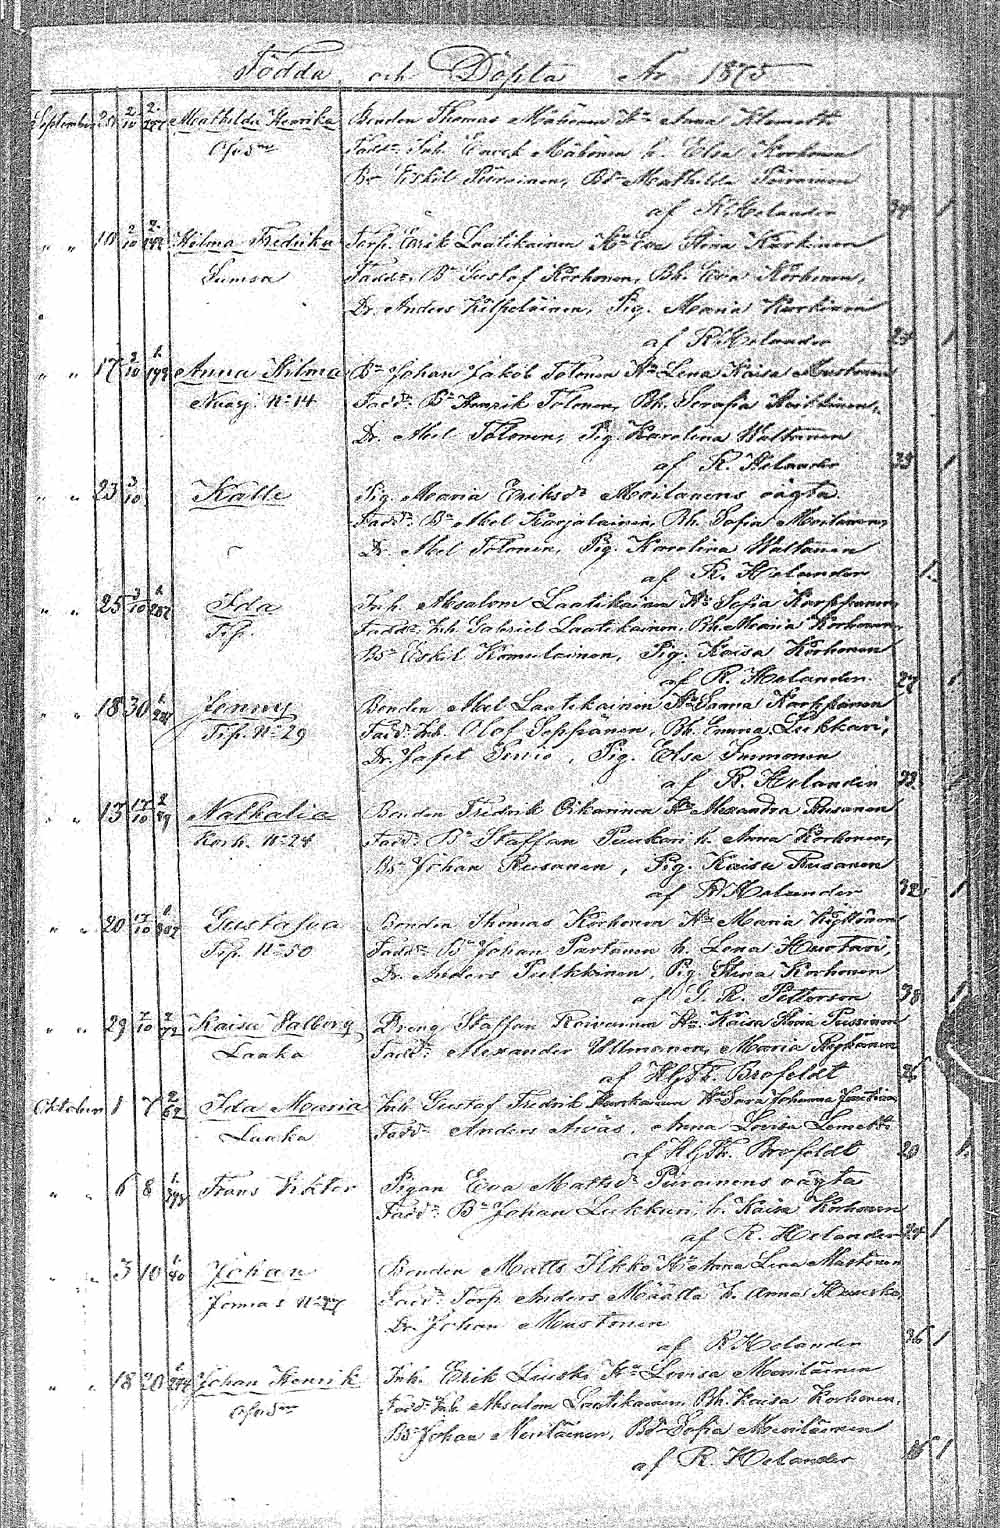 Födda och Döpta År 1875
September 28 2/10 Mathilda Henrika Bonden Thomas Mähönen Hu Anna Klemett.
Fadd. Inh. Enock Mähönen h. Elsa Korhonen
Br Eskil Piirainen, Bd Mathilda Piirainen
af R. Helander 34 1
" " 10 2/10 Hilma Fredrika Torp. Erik Laatikainen Hu Eva Stina Karkinen
Sumsa Fadd. Bn Gustaf Korhonen, Bh. Eva Korhonen,
Dr. Anders Kilpeläinen, Pig. Maria Karkinen
af R Helander 1
" " 17 2/10 Anna Hilma Bn Johan Jakob Tolonen Hu Lena Kaisa Mustonen
Nuasj. No 14 Fadd. Bn Henrik Tolonen, Bh. Serafia Heikkinen,
Dr. Abel Tolonen, Pig. Karolina Waltanen
af R. Helander 33 1
" " 23 3/10 Kalle Pig. Maria Eriksdr Moilanens oägta
Fadd. Bn Abel Karjalainen, Bh. Sofia Moilanen,
Dr. Abel Tolonen, Pig. Karolina Waltanen
af R. Helander 1
" " 25 3/10 Ida Inh. Absalom Laatikainen Hu Sofia Karppanen
Fadd. Inh Gabriel Laatikainen, Bh. Maria Korhonen,
Bs Eskil Komulainen, Pig. Kaisa Korhonen
af R. Helander 27 1
" " 18 30 Jenny Bonden Abel Laatikainen Hu Sanna Karppanen
Tip. No 29 Fadd. Inh. Olof Seppänen, Bh. Emma Lukkari,
Dr. Jafet , Pig. Elsa Immonen
af R. Helander 33
" " 13 17/10 Nathalia Bonden Fredrik Oikarinen Hu Alexandra Rusanen
Korh. No 24 Fadd. Bn Staffan Puukari h. Anna Korhonen,
Bs Johan Rusanen, Pig. Kaisa Rusanen
af R Helander 32 1
" " 20 17/10 Gustafva Bonden Thomas Korhonen Hu Maria
Tip. No 50 Fadd. Bn Johan Partanen h. Lena Huotari,
Dr. Anders Pulkkinen, Pig. Stina Korhonen
af G. R. Petterson 38 1
" " 29 7/10 Kaisa Walborg Dreng Staffan Roivainen Hu Kaisa Stina Pussinen
Laaka Fadd. Alexander Ullmanen, Maria
af Hj. Th. Brofeldt 26
Oktober 1 7 2/62 Ida Maria Inh. Gustaf Fredrik Hu Sara Johanna
Laaka Fadd. Anders Awas, Anna Lovisa Lemett.
af Hj. Th. Brofeldt 20 1
" " 6 8 Frans Viktor Pigan Eva Mathsdr Piirainens oägta
Fadd. Bn Johan Lukkari, h. Kaisa Korhonen
af R. Helander 1
" " 3 10 1/40 Johan Bonden Matts Ilkko Hu Anna Lena Mustonen
Jormas No 27 Fadd. Torp. Anders Määttä h. Anna
Dr. Johan Mustonen
af R Helander 36 1
" " 18 20 Johan Henrik Inh. Erik Hu Lovisa Meriläinen
Fadd. Inh. Absalom Laatikainen, Bh. Kaisa Korhonen,
Bs Johan Meriläinen, Bd Sofia Meriläinen
af R. Helander 1